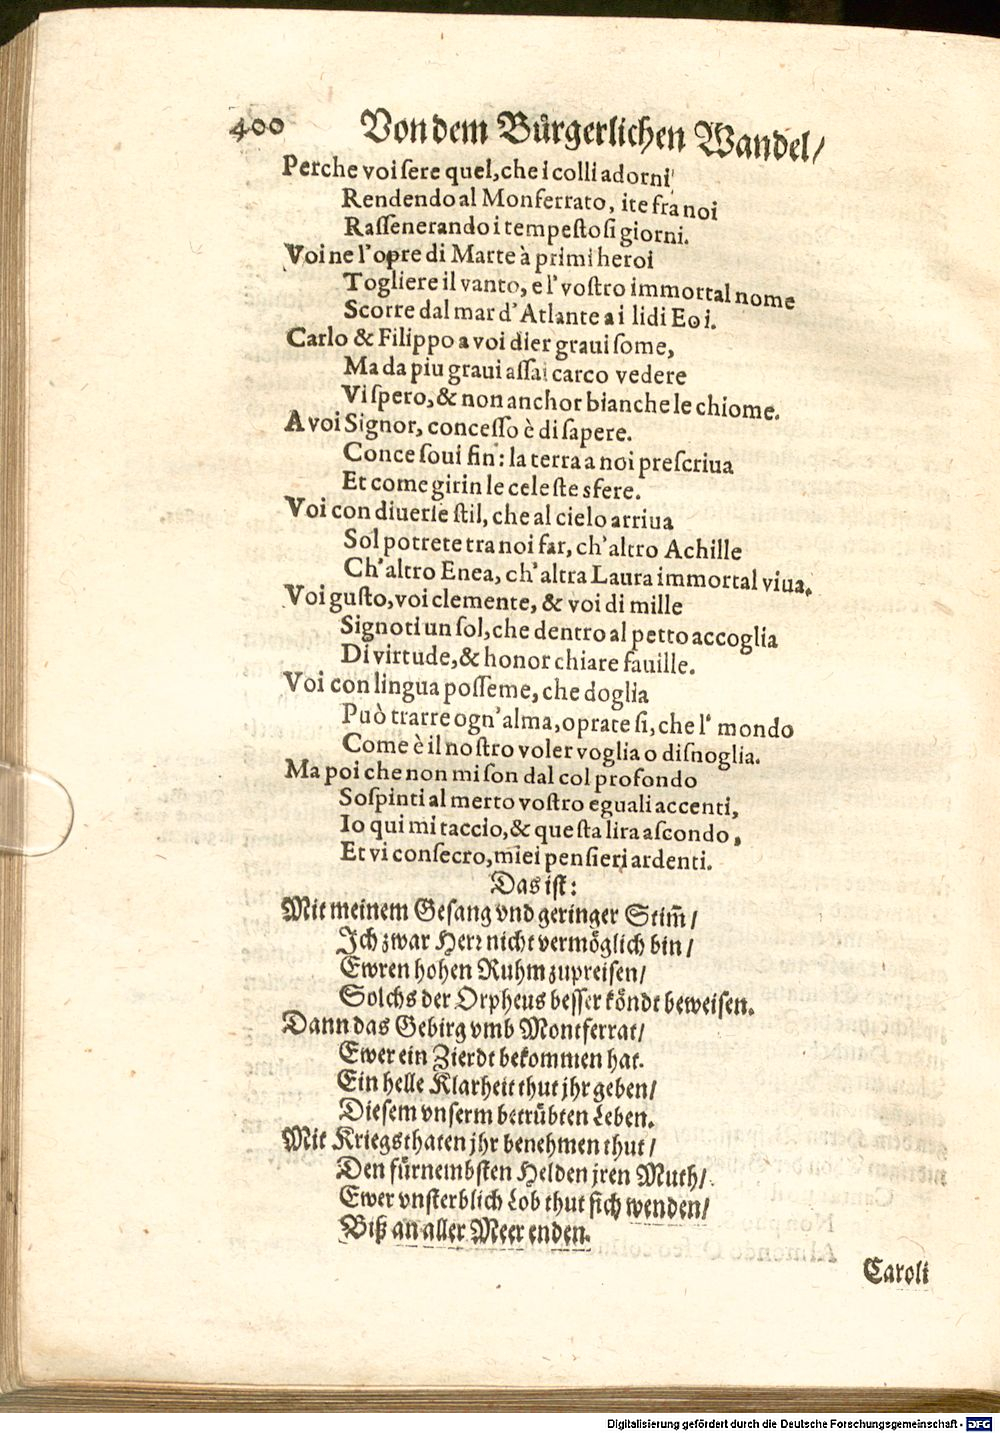 400 Von dem Bürgerlichen Wandel/
Perche voi sere quel, che i colli adorni
Rendendo al Monferrato, ite fra noi
Rassenerando i tempestosi giorni.
Voi ne l'opre di Marte à primi heroi
Togliere il vanto, e l'vostro immortal nome
Scorre dal mar d'Atlante ai lidi Eoi.
Carlo & Filippo a voi dier graui some,
Ma da piu graui assai carco vedere
Vi spero, & non anchor bianche le chiome.
A voi Signor, concesso è di sapere.
Conce soui fin: la terra a noi prescriua
Et come girin le celeste sfere.
Voi con diuerse stil, che al cielo arriua
Sol potrete tra noi far, ch'altro Achille
Ch'altro Enea, ch'altra Laura immortal viua.
Voi gusto, voi clemente, & voi di mille
Signoti un sol, che dentro al petto accoglia
Di virtude, & honor chiare fauille.
Voi con lingua posseme, che doglia
Può trarre ogn'alma, oprate si, che l' mondo
Come è il nostro voler voglia o disuoglia.
Ma poi che non mi son dal col profondo
Sospinti al merto vostro eguali accenti,
Io qui mi taccio, & questa lira ascondo,
Et vi consecro, miei pensieri ardenti.
Das ist:
Mit meinem Gesang vnd geringer Stim̃/
Ich zwar Herr nicht vermöglich bin/
Ewren hohen Ruhm zupreisen/
Solchs der Orpheus besser köndt beweisen.
Dann das Gebirg vmb Montferrat/
Ewer ein Zierdt bekommen hat.
Ein helle Klarheit thut jhr geben/
Diesem vnserm betrübten Leben.
Mit Kriegsthaten jhr benehmen thut/
Den fürnembsten Helden jren Muth/
Ewer vnsterblich Lob thut sich wenden/
Biß an aller Meer enden.
Caroli
Digitalisierung gefördert durch die Deutsche Forschungsgemeinschaft - DFG